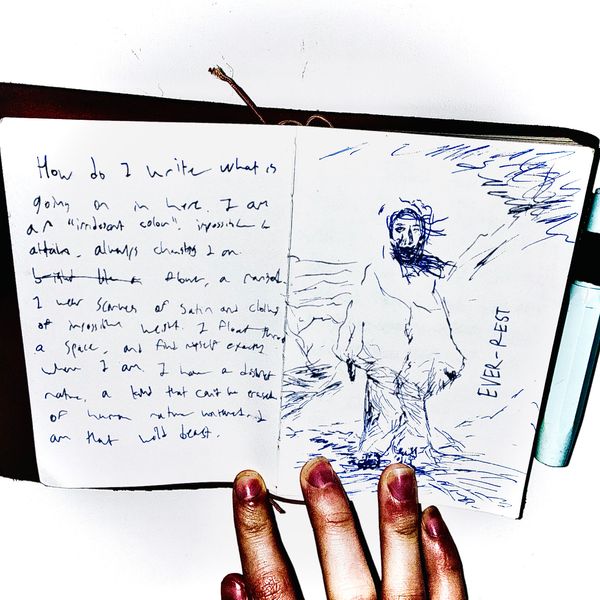 How do I write what is
going on in here. I am
an "irridescent colour". impossible to
attain, always changing I am
I wear scarves of satin and clothes
of impossible weight. I float thro
a space, and find myself exactly
where I am. I have a distinct
nature, a kind that can't be
of human nature I
am that wild beast.
EVER-REST